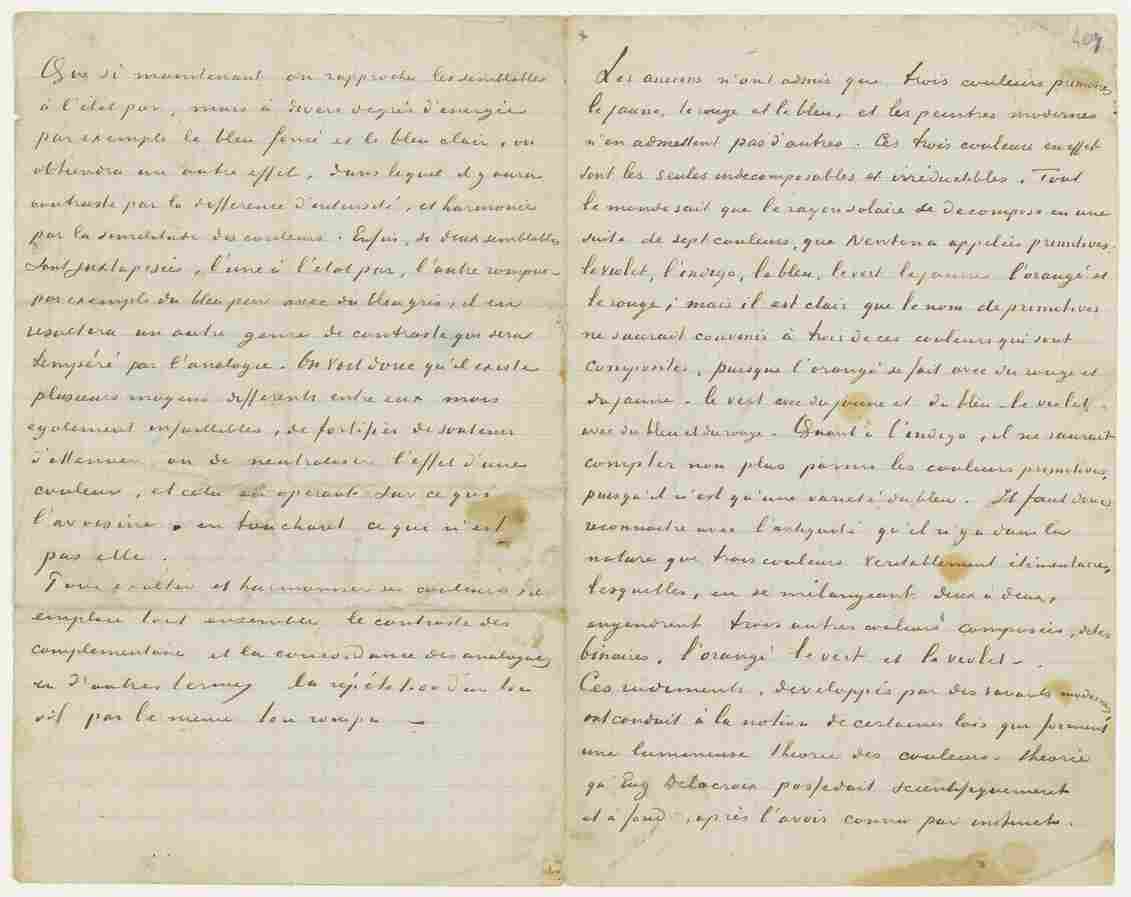 Que si maintenant on rapproche les semblables
à l'état pur, mais à divers degrés d'energie
par exemple le bleu foncé et le bleu clair, on
obtiendra un autre effet, dans lequel il y aura
contraste par la difference d'intensité, et harmonie
par la similitude des couleurs. Enfin, si deux semblables
sont juxtaposés, l'une à l'état pur, l'autre rompue
par exemple du bleu pur avec du bleu gris, il en
resultera un autre genre de contraste qui sera
tempéré par l'analogie. On voit donc qu'il existe
plusieurs moyens differents entre eux mais
egalement infaillibles, de fortifier de soutenir
d'attenuer ou de neutraliser l'effet d'une
couleur, et cela en operant sur ce qui
l'avoisine, en touchant ce qui n'est
pas elle.
Pour exalter et harmoniser ses couleurs il
emploie tout ensemble le contraste des
complementaire et la concordance des analogues,
en d'autres termes la répétition d'un ton
vif par le même ton rompu —
409
Les anciens n'ont admis que trois couleurs primaires,
le jaune, le rouge et le bleu, et les peintres modernes
n'en admettent pas d'autres. Ces trois couleurs en effet
sont les seules indecomposables et irréductibles. Tout
le monde sait que le rayon solaire se decompose en une
suite de sept couleurs, que Newton a appelées primitives.
le violet, l'indigo, le bleu, le vert le jaune l'orangé et
le rouge; mais il est clair que le nom de primitives
ne saurait convenir à trois de ces couleurs qui sont
composites, puisque l'orangé se fait avec du rouge et
du jaune - le vert avec du jaune et du bleu - le violet,
avec du bleu et du rouge. Quant à l'indigo, il ne saurait
compter non plus parmi les couleurs primitives,
puisqu'il n'est qu'une varieté du bleu. Il faut donc
reconnaitre avec l'antiquité qu'il n'y a dans la
nature que trois couleurs veritablement élémentaires,
lesquelles, en se mélangeant deux à deux,
engendrent trois autres couleurs composées, dites
binaires, l'orangé le vert et le violet.
Ces rudiments, developpés par des savants modernes
ont conduit à la notion de certaines lois qui forment
une lumineuse theorie des couleurs. theorie
qu'Eug Delacroix possedait scientifiquement
et à fond, après l'avoir connu par instinct.